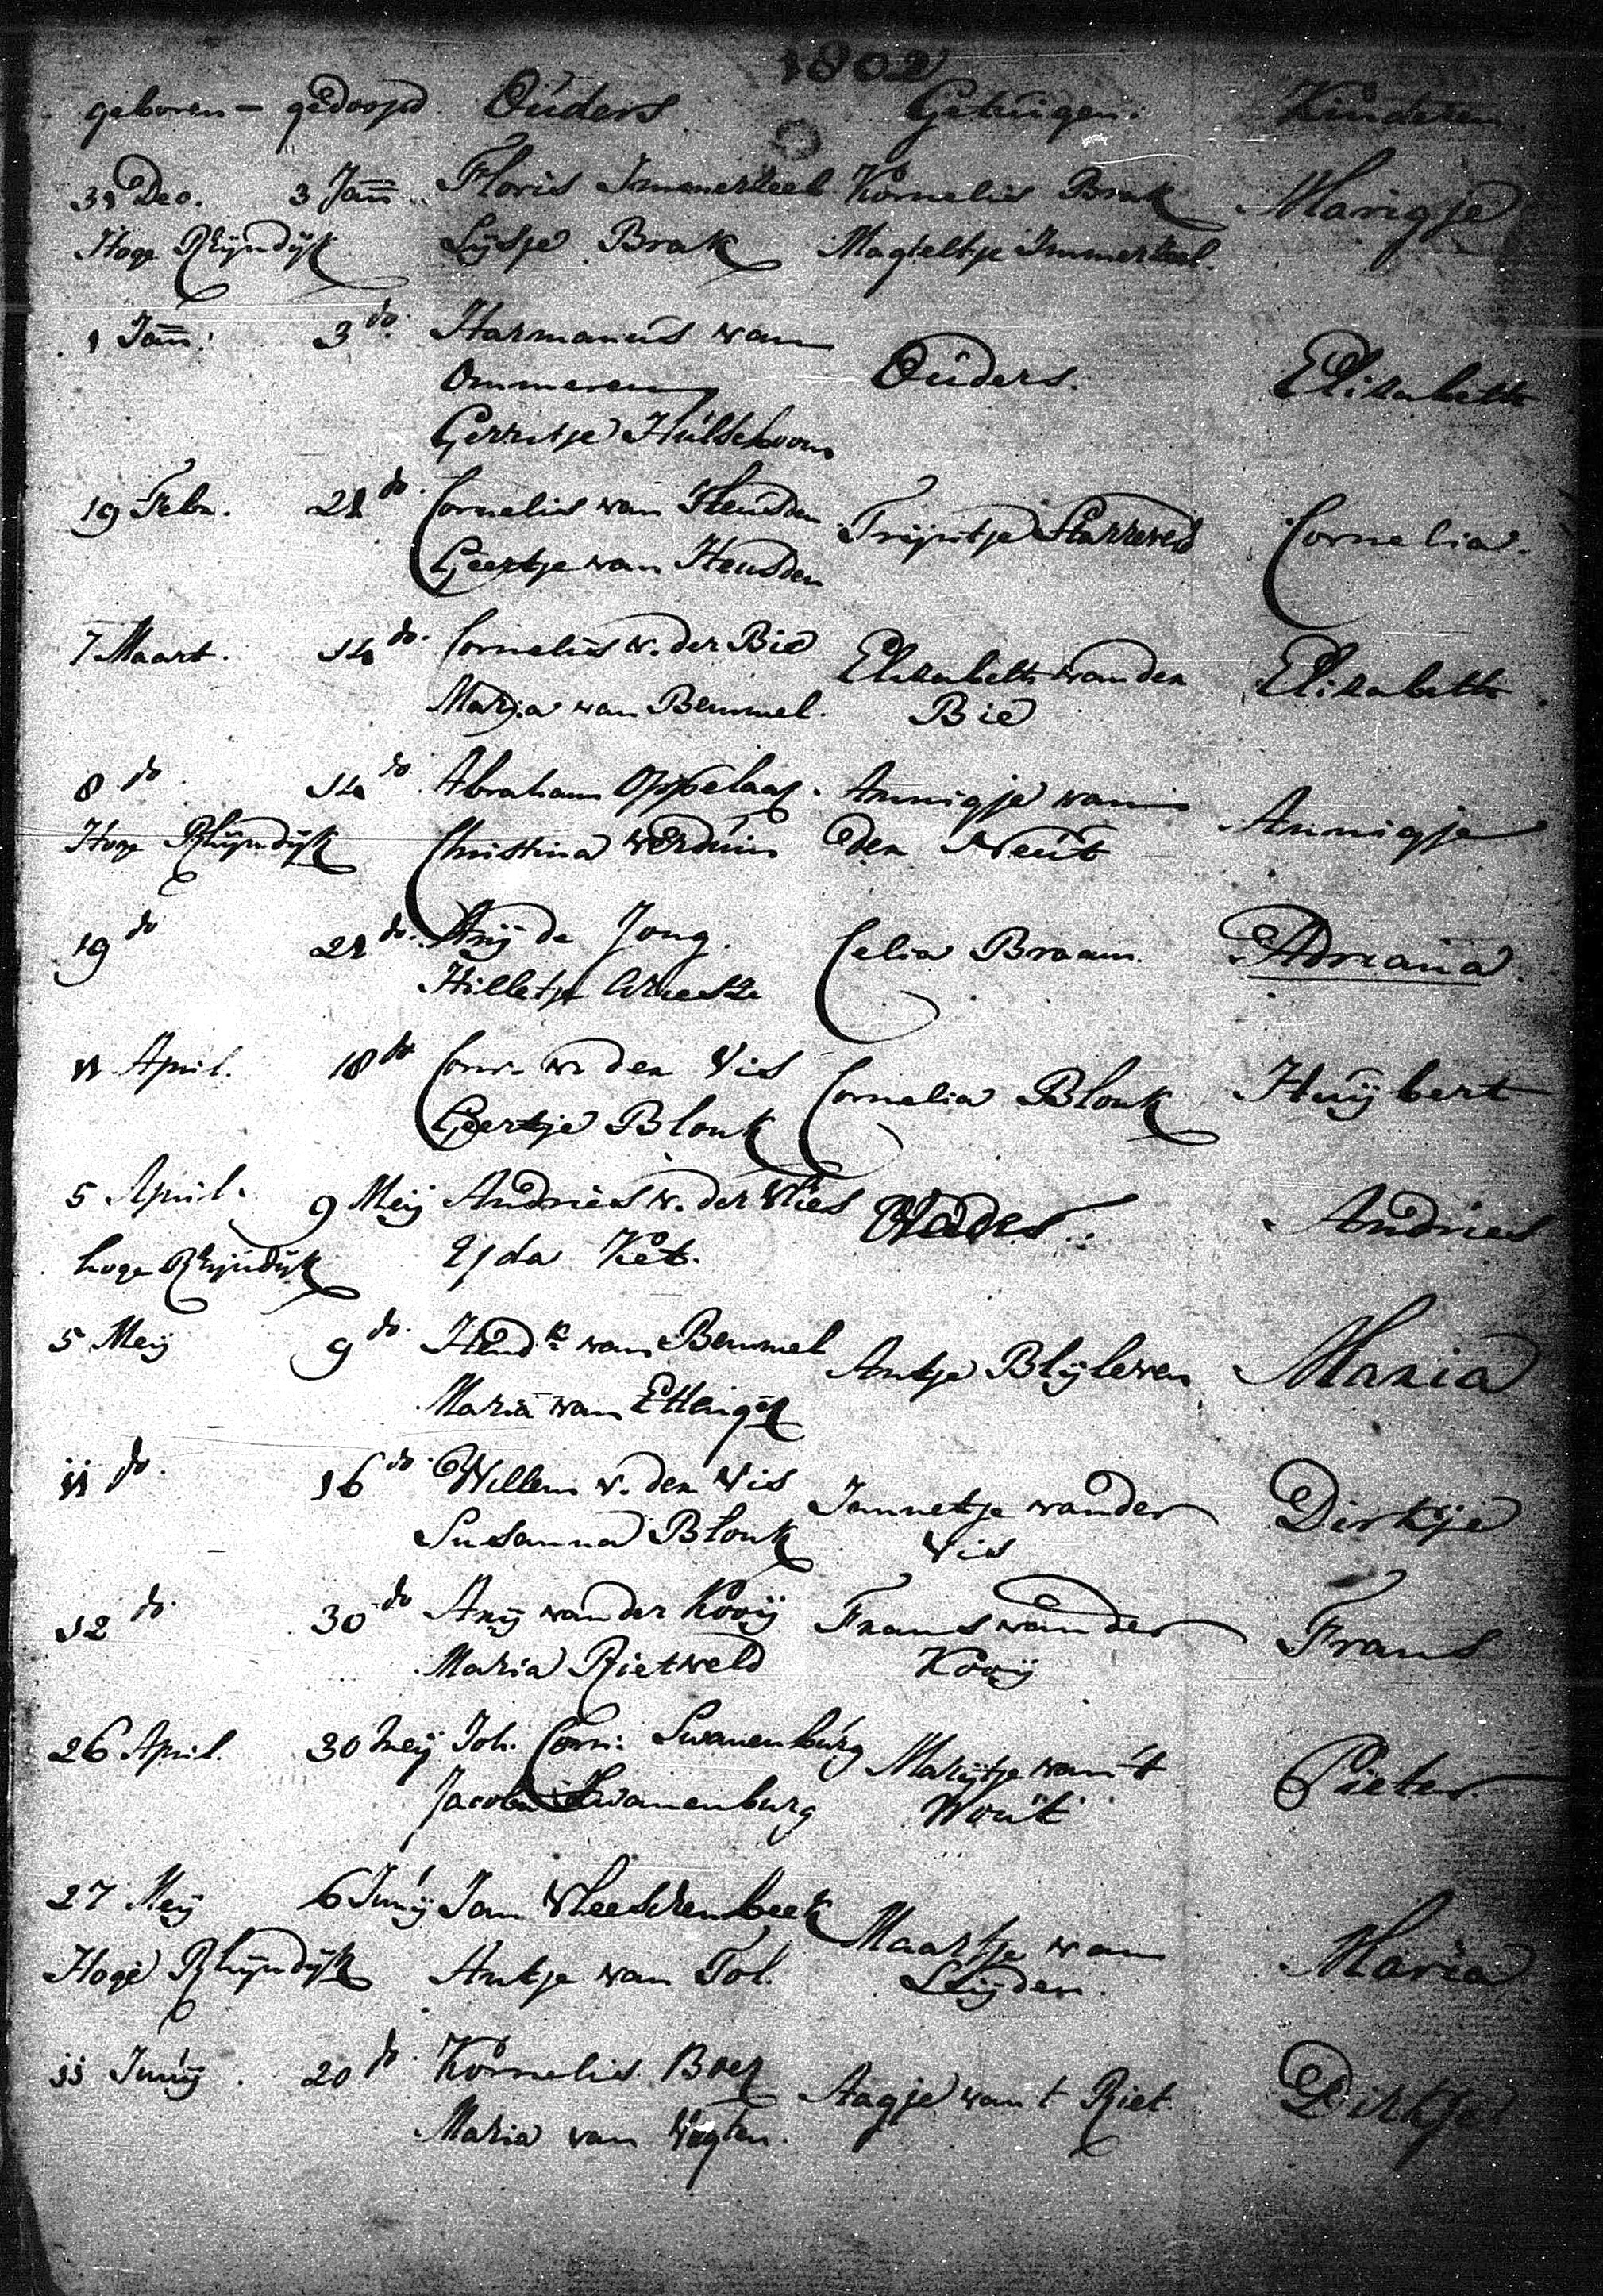 1802
geboren - gedoopd Ouders Getuigen: Kinderen
31 Dec. 3 Jan Floris Immerzeel Kornelis Brak Marigje
Hoge Rhijndijk Lijsje Brak Magteltje Immerzeel.
1 Jan: 3 do. Harmanus van
Ommeren Ouders. Elizabeth
Gerritje Hulseboom
19 Febr. 21 do. Cornelis van Heusden Trijntje Starreveld Cornelia.
Geertje van Heusden
7 Maart. 14 do. Cornelis v. der Bie Elizabeth van der Elizabeth
Maria van Bemmel. Bie
8 do 14 do Abraham Oppelaar. Annigje van Annigje
Hoge Rhijndijk Christina Verduin den Neut
19 do 21 do. Arij de Jong. Celia Braam. Adriana.
Hilletje
11 April. 18 do Corn. v. den Vis Cornelia Blonk Huijbert
Geertje Blonk
5 April. 9 Meij Andries v. der Vlies Vader. Andries
hoge Rhijndijk Ijda Ket.
5 Meij 9 do. Hendk. van Bemmel Antje Blijleven Maria
Maria van Ettinger
11 do. 16 do. Willem v. den Vis Jannetje van der Dirkje
Susanna Blonk Vis
12 do. 30 do Arij van der Kooij Frans van der Frans
Maria Rietveld Kooij
26 April. 30 Meij Joh. Corn: Swanenburg Marijtje van 't Pieter.
Jacoba Swanenburg Wout
27 Meij 6 Junij Jan Vleeschenbeek Maartje van Maria
Hoge Rhijndijk Antje van Tol. Leijden.
11 Junij. 20 do. Kornelis Boer Aagje van t Riet. Dirkje
Maria van Vogten.